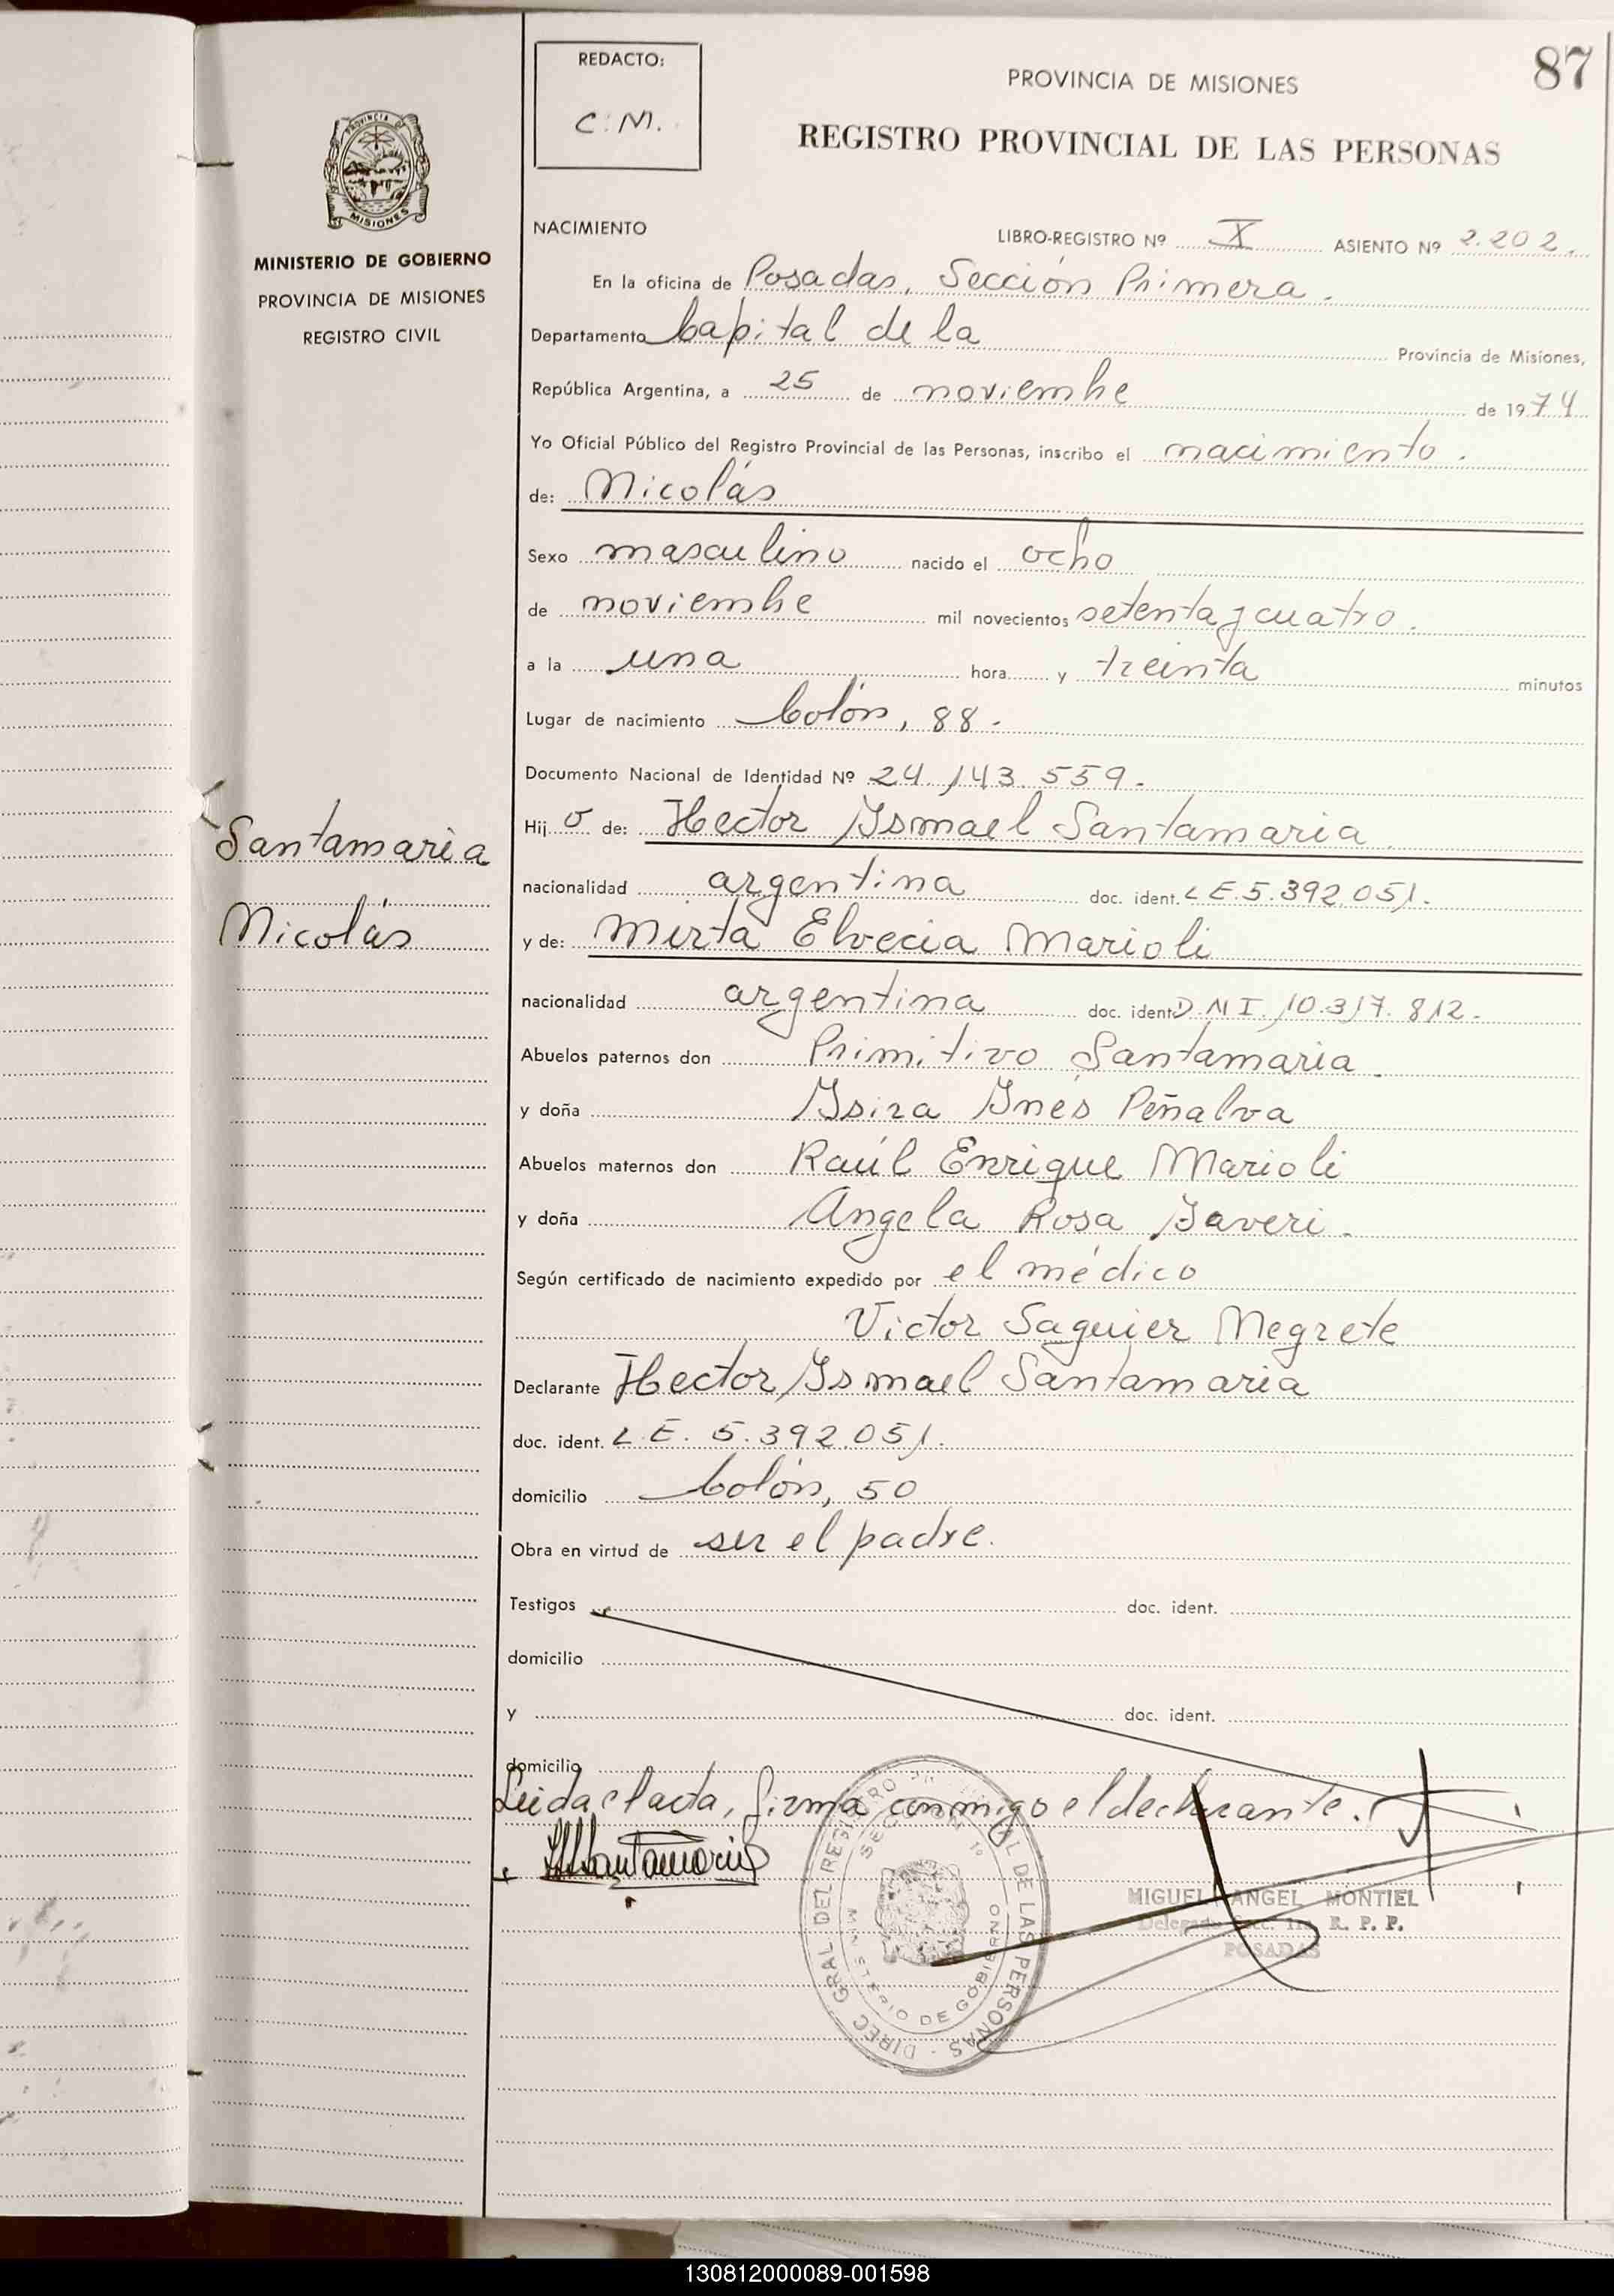 87
REDACTO:
C.M.
PROVINCIA DE MISIONES
REGISTRO PROVINCIAL DE LAS PERSONAS
MISIONES
MINISTERIO DE GOBIERNO
PROVINCIA DE MISIONES
REGISTRO CIVIL
Santamaria
Nicolás
NACIMIENTO
LIBRO-REGISTRO Nº X ASIENTO Nº 2.202.
En la oficina de Posadas, Sección Primera.
Departamento Capital de la Provincia de Misiones,
República Argentina, a 25 de noviembre de 1974
Yo Oficial Público del Registro Provincial de las Personas, inscribo el nacimiento.
de: Nicolás
Sexo masculino nacido el ocho
de noviembre mil novecientos setenta y cuatro.
a la una hora y treinta minutos
Lugar de nacimiento Colón, 88.
Documento Nacional de Identidad Nº 24.143.559.
Hijo de: Hector Ismael Santamaria
nacionalidad argentina doc. ident. L E. 5.392.051.
y de: Mirta Elvecia Marioli
nacionalidad argentina doc. ident D.N I. 10.317.812.
Abuelos paternos don Primitivo Santamaria.
y doña Isira Inés Peñalva
Abuelos maternos don Raúl Enrique Marioli
y doña Angela Rosa
Según certificado de nacimiento expedido por el médico
Victor Saguier Negrete
Declarante Hector Ismael Santamaria
doc. ident. L.E. 5.392.051.
domicilio Colón, 50
Obra en virtud de ser el padre.
Testigos doc. ident.
domicilio
y doc. ident.
domicilio
Leida el acta, firma conmigo el declarante.
DIREC GRAL DEL REGISTRO PROVINCIAL DE LAS PERSONAS
MINISTERIO DE GOBIERNO
MIGUEL ANGEL MONTIEL
Delegado Secc. 1ra. R. P. P.
POSADAS
130812000089-001598